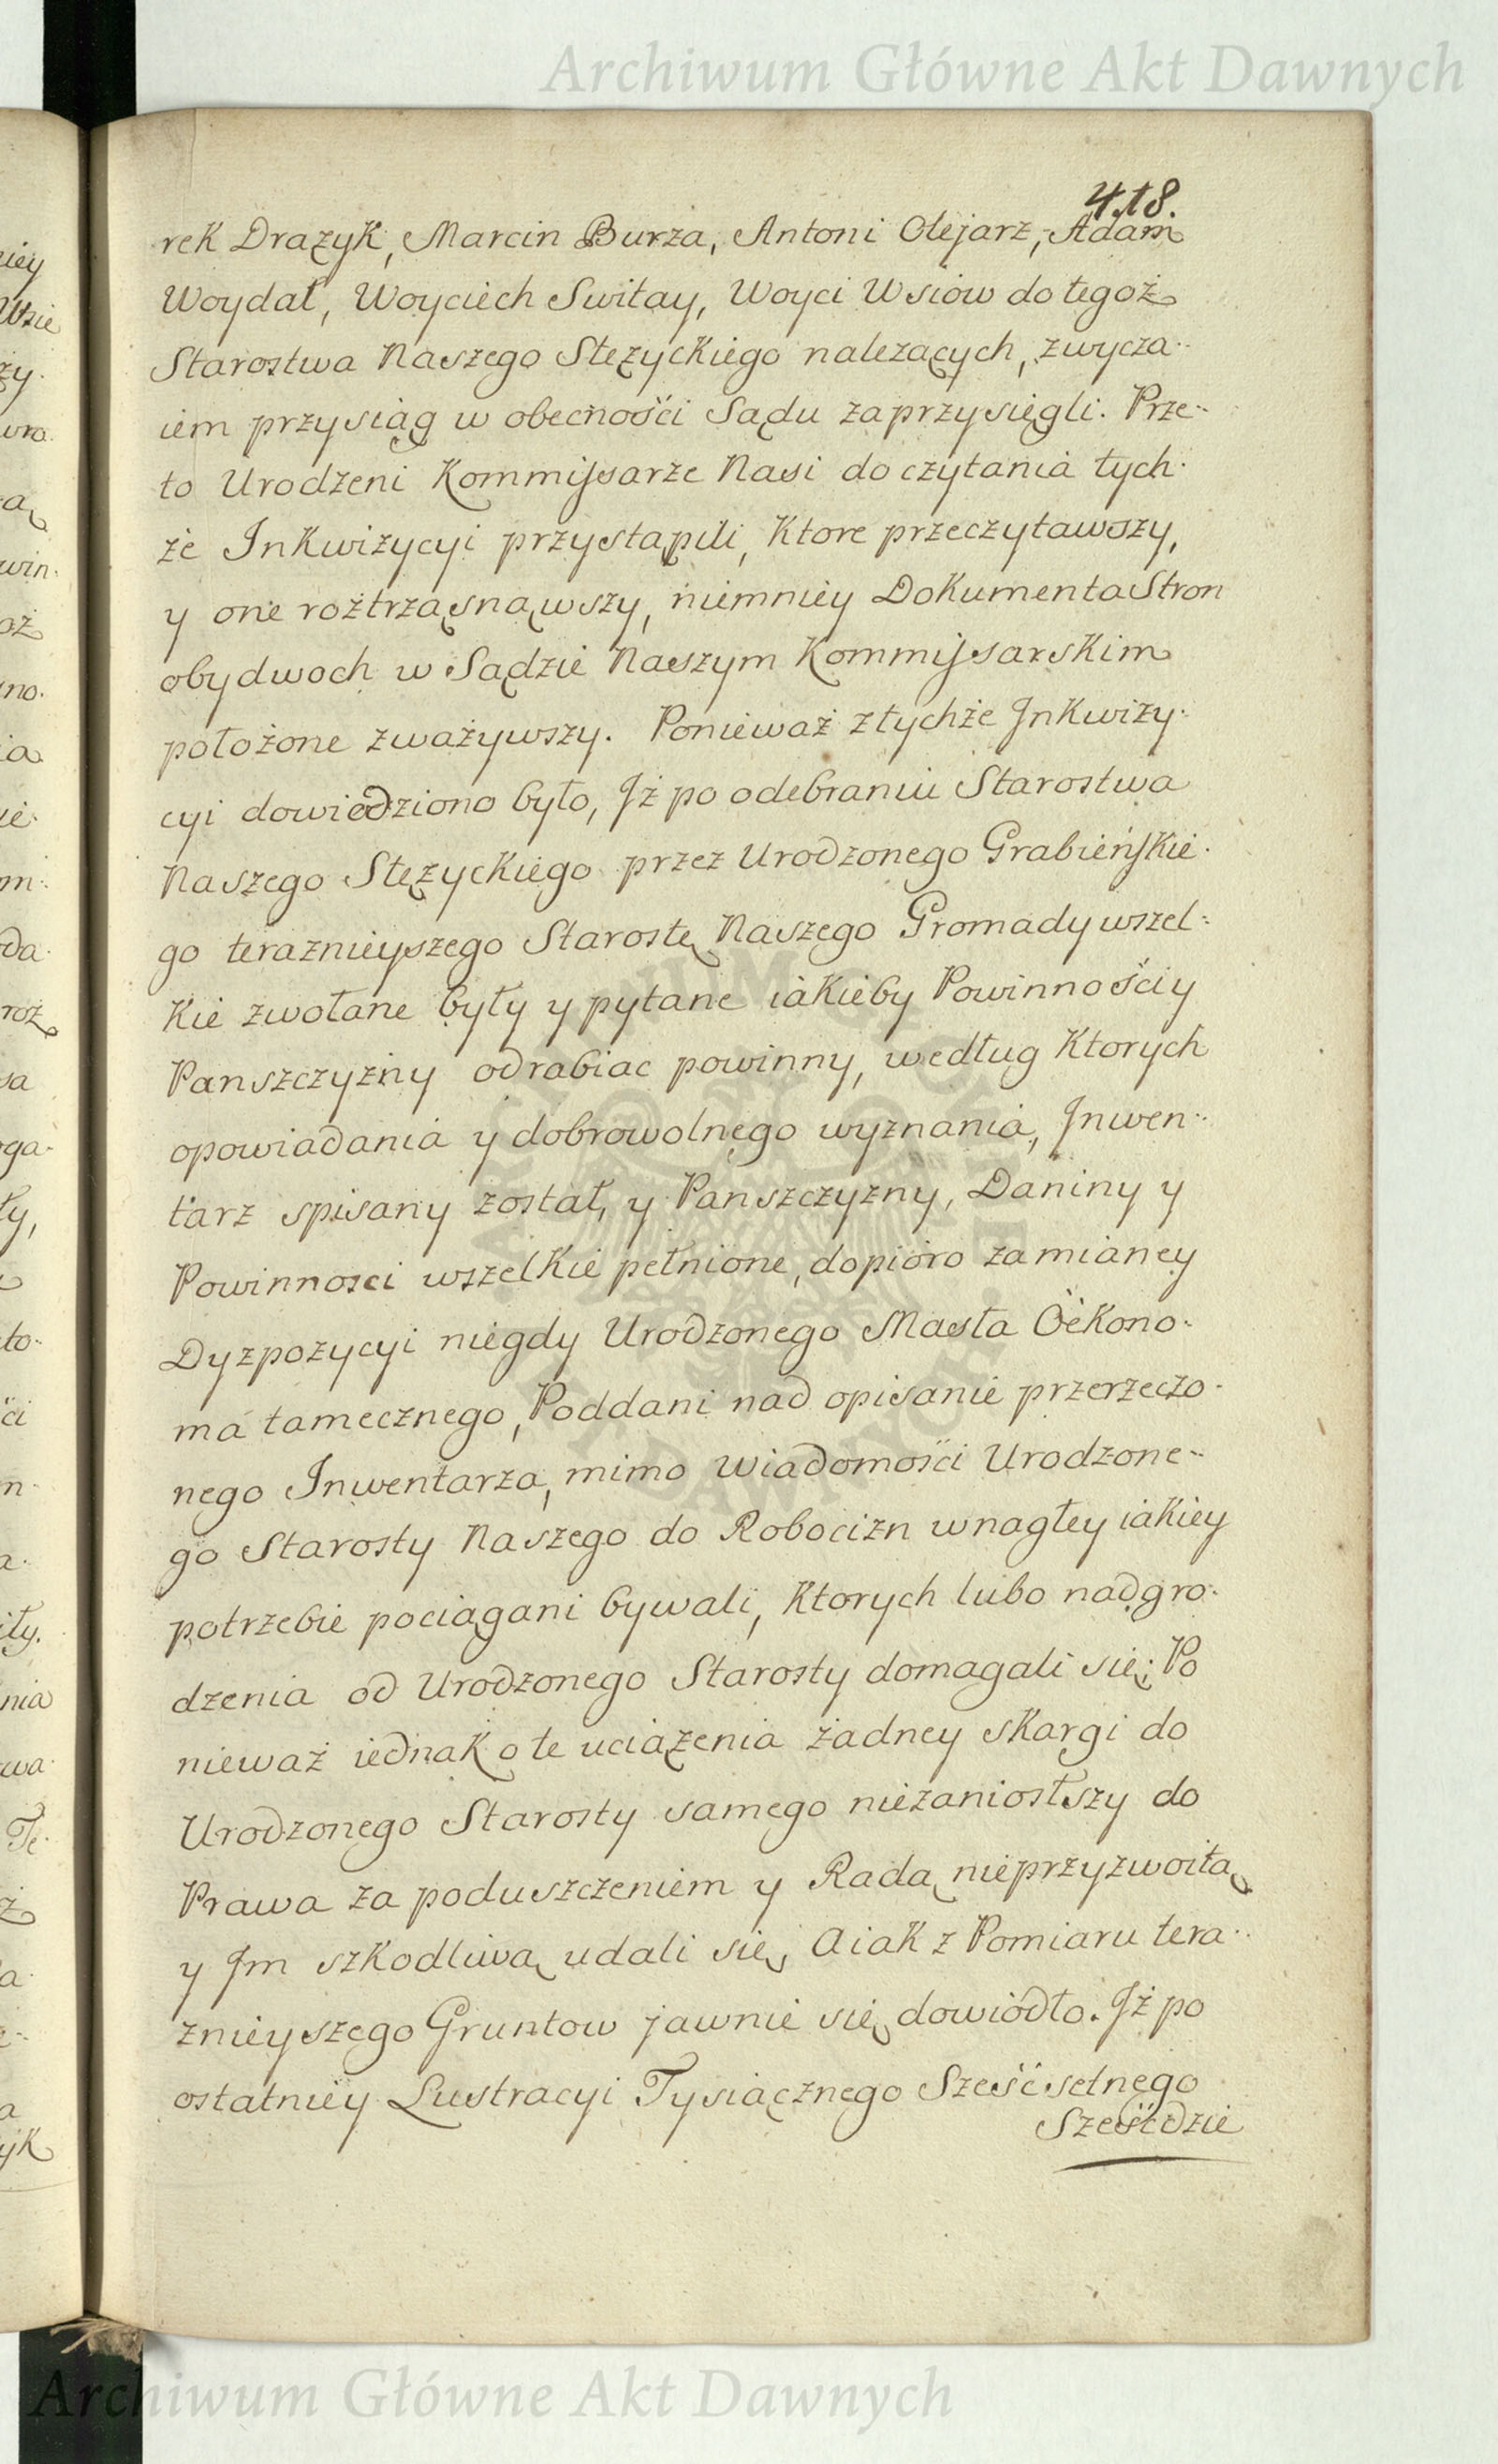 Archiwum Główne Akt Dawnych
418.
rek Drazyk, Marcin Burza, Antoni Olejarz, Adam
Woydat, Woyciech Switay, Woyci Wsiow do tegoż
Starostwa Naszego Stęzyckiego nalezących, zwycza-
iem przysiąg w obecności Sądu zaprzysięgli. Prze-
to Urodzeni Kommissarze Nasi do czytania tych-
że Inkwizycyi przystąpili, Ktore przeczytawszy,
y one roztrząsnąwszy, niemniey Dokumenta Stron
obydwoch w Sądzie Naszym Kommissarskim
położone zważywszy. Ponieważ z tychże Inkwizy-
cyi dowiedziono było, Iż po odebraniu Starostwa
Naszego Stęzyckiego przez Urodzonego Grabieńskie-
go teraznieyszego Starostę Naszego Gromady wszel-
kie zwołane były y pytane iakieby Powinności y
Panszczyzny odrabiac powinny, według Ktorych
opowiadania y dobrowolnego wyznania, Inwen-
tarz spisany został, y Panszczyzny, Daniny y
Powinnosci wszelkie pełnione, dopioro za mianey
Dyzpozycyi niegdy Urodzonego Masła Oekono-
ma tamecznego, Poddani nad opisanie przerzeczo-
nego Inwentarza, mimo wiadomości Urodzone-
go Starosty Naszego do Robocizn w nagłey iakiey
potrzebie pociągani bywali, Ktorych lubo nadgro-
dzenia od Urodzonego Starosty domagali się; Po
nieważ iednak o te uciązenia żadney skargi do
Urodzonego Starosty samego niezaniosłszy do
Prawa za poduszczeniem y Radą nieprzyzwoitą
y Im szkodliwą udali się, a iak z Pomiaru tera-
znieyszego Gruntow jawnie się dowiodło. Iż po
ostatniey Lustracyi Tysiącznego Sześćsetnego
Sześcdzie
Archiwum Główne Akt Dawnych